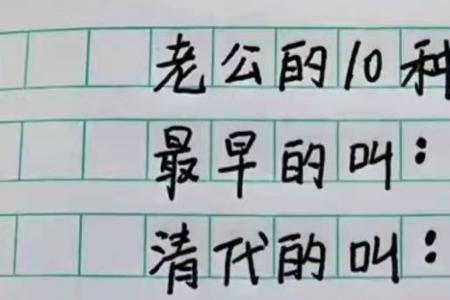 老公的10种
最早的叫：
清代的叫：